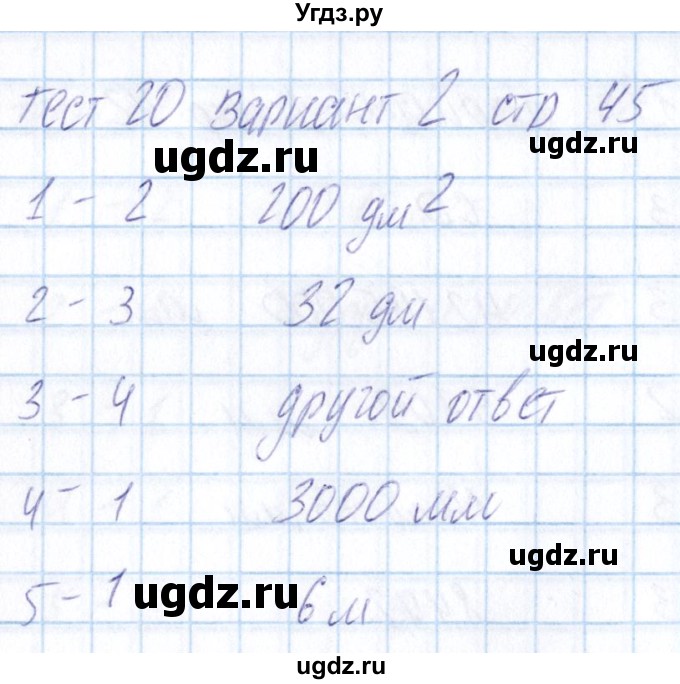 Угдз.ру
Тест 20 вариант 2 стр 45
ugdz.ru
ugdz.ru
1 - 2 200 дм²
2 - 3 32 дм
ugdz.ru
3 - 4 другой ответ
4 - 1 3000 мм
ugdz.ru
5 - 1 6 м
ugdz.ru
ugdz.ru